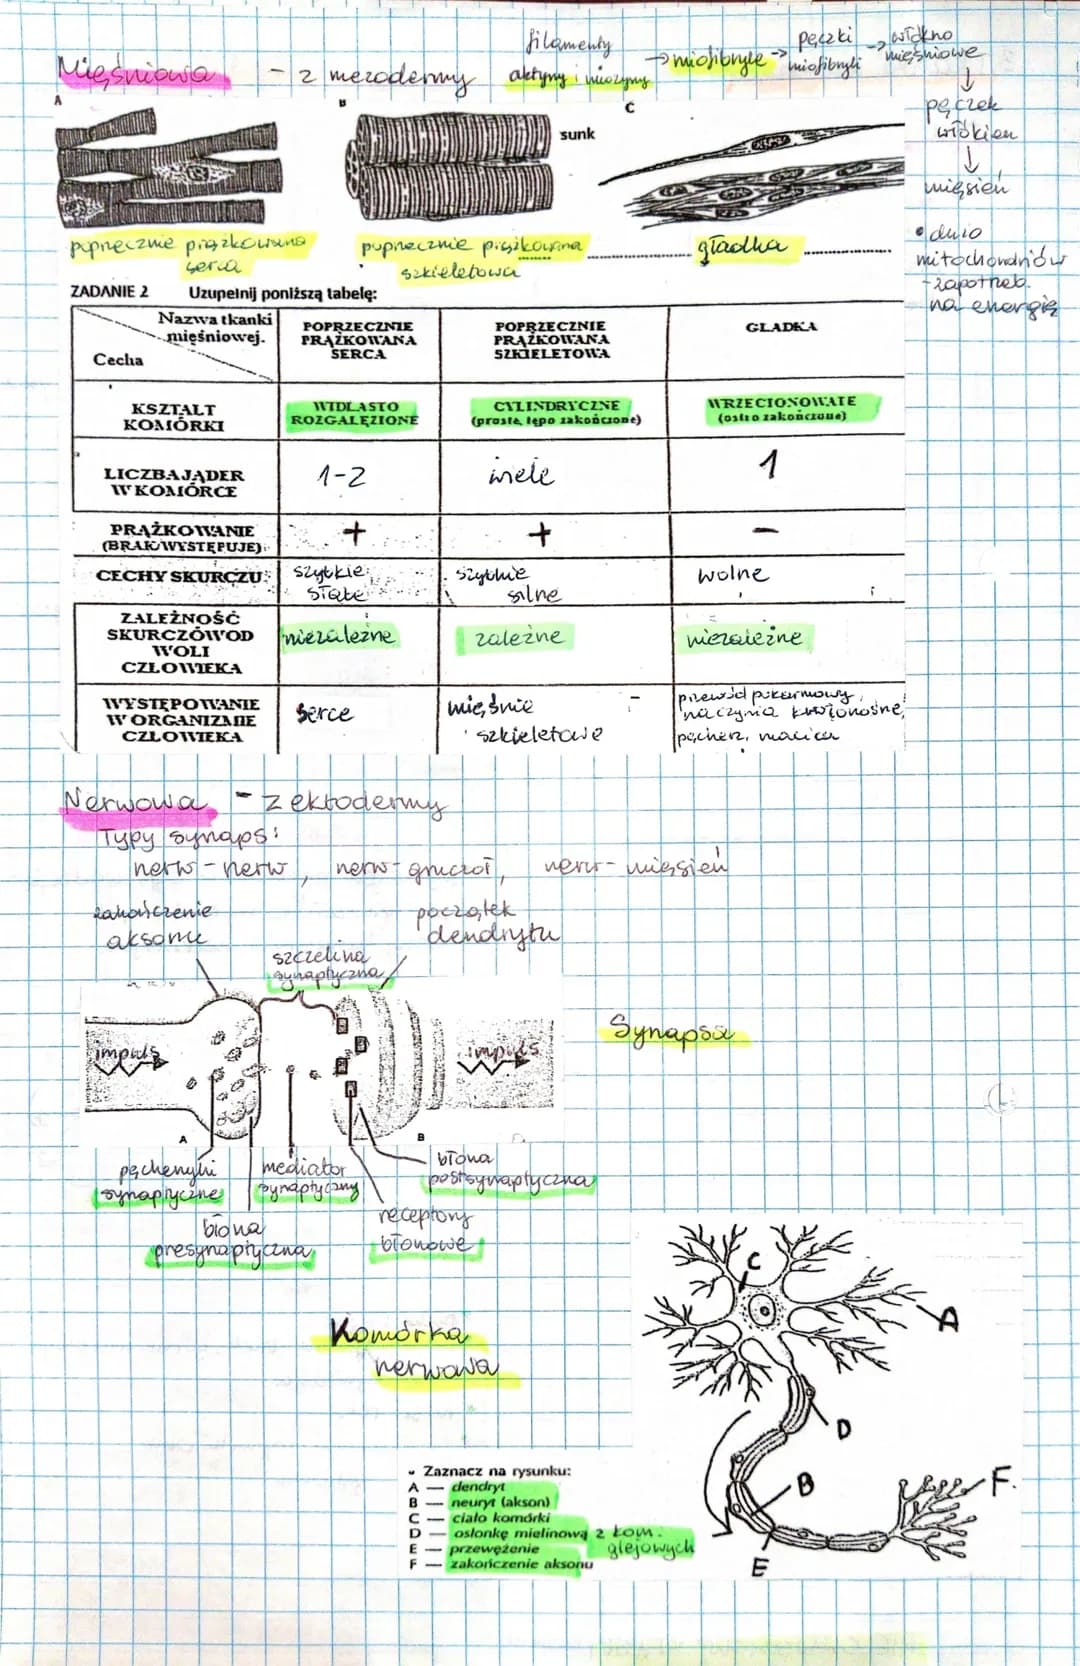 Mięśniowa - z mezodermy
filamenty
aktyny i miozyny → miofibryle → pęczki miofibryli → włókno mięśniowe
↓
pęczek
włókien
↓
mięsień
• dużo
mitochondriów
- zapotrzeb.
na energię
A
B
C
sunk
poprzecznie prążkowana
serca
poprzecznie prążkowana
szkieletowa
gładka
ZADANIE 2 Uzupełnij poniższą tabelę:
Nazwa tkanki
mięśniowej.
Cecha
POPRZECZNIE
PRĄŻKOWANA
SERCA
POPRZECZNIE
PRĄŻKOWANA
SZKIELETOWA
GLADKA
KSZTALT
KOMÓRKI
WIDLASTO
ROZGALĘZIONE
CYLINDRYCZNE
(proste, tępo zakończone)
WRZECIONOWATE
(ostro zakończone)
LICZBA JĄDER
W KOMÓRCE
1-2
wiele
1
PRĄŻKOWANIE
(BRAK/WYSTĘPUJE)
+
+
-
CECHY SKURCZU
szybkie
słabe
szybkie
silne
wolne
ZALEŻNOŚĆ
SKURCZÓW OD
WOLI
CZŁOWIEKA
niezależne
zależne
niezależne
WYSTĘPOWANIE
W ORGANIZMIE
CZŁOWIEKA
serce
mięśnie
szkieletowe
przewód pokarmowy,
naczynia krwionośne,
pęcherz, macica
Nerwowa - z ektodermy
Typy synaps:
nerw - nerw, nerw - gruczoł, nerw - mięsień
zakończenie
aksonu
początek
dendrytu
szczelina
synaptyczna
impuls
impuls
Synapsa
A
B
pęcherzyki
synaptyczne
mediator
synaptyczny
błona
postsynaptyczna
błona
presynaptyczna
receptory
błonowe
Komórka
nerwowa
C
A
D
B
F.
E
Zaznacz na rysunku:
A — dendryt
B — neuryt (akson)
C — ciało komórki
D — osłonkę mielinową z kom.
glejowych
E — przewężenie
F — zakończenie aksonu